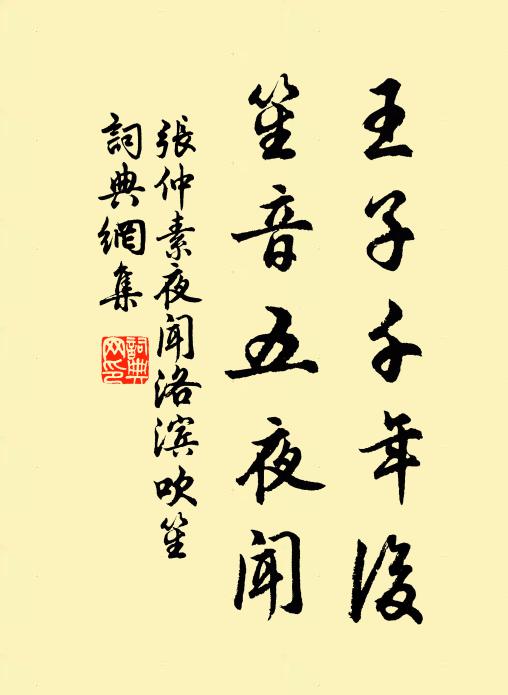 王子千年後
笙音五夜聞
張仲素夜聞洛滨吹笙
詞典網集
詞典网印